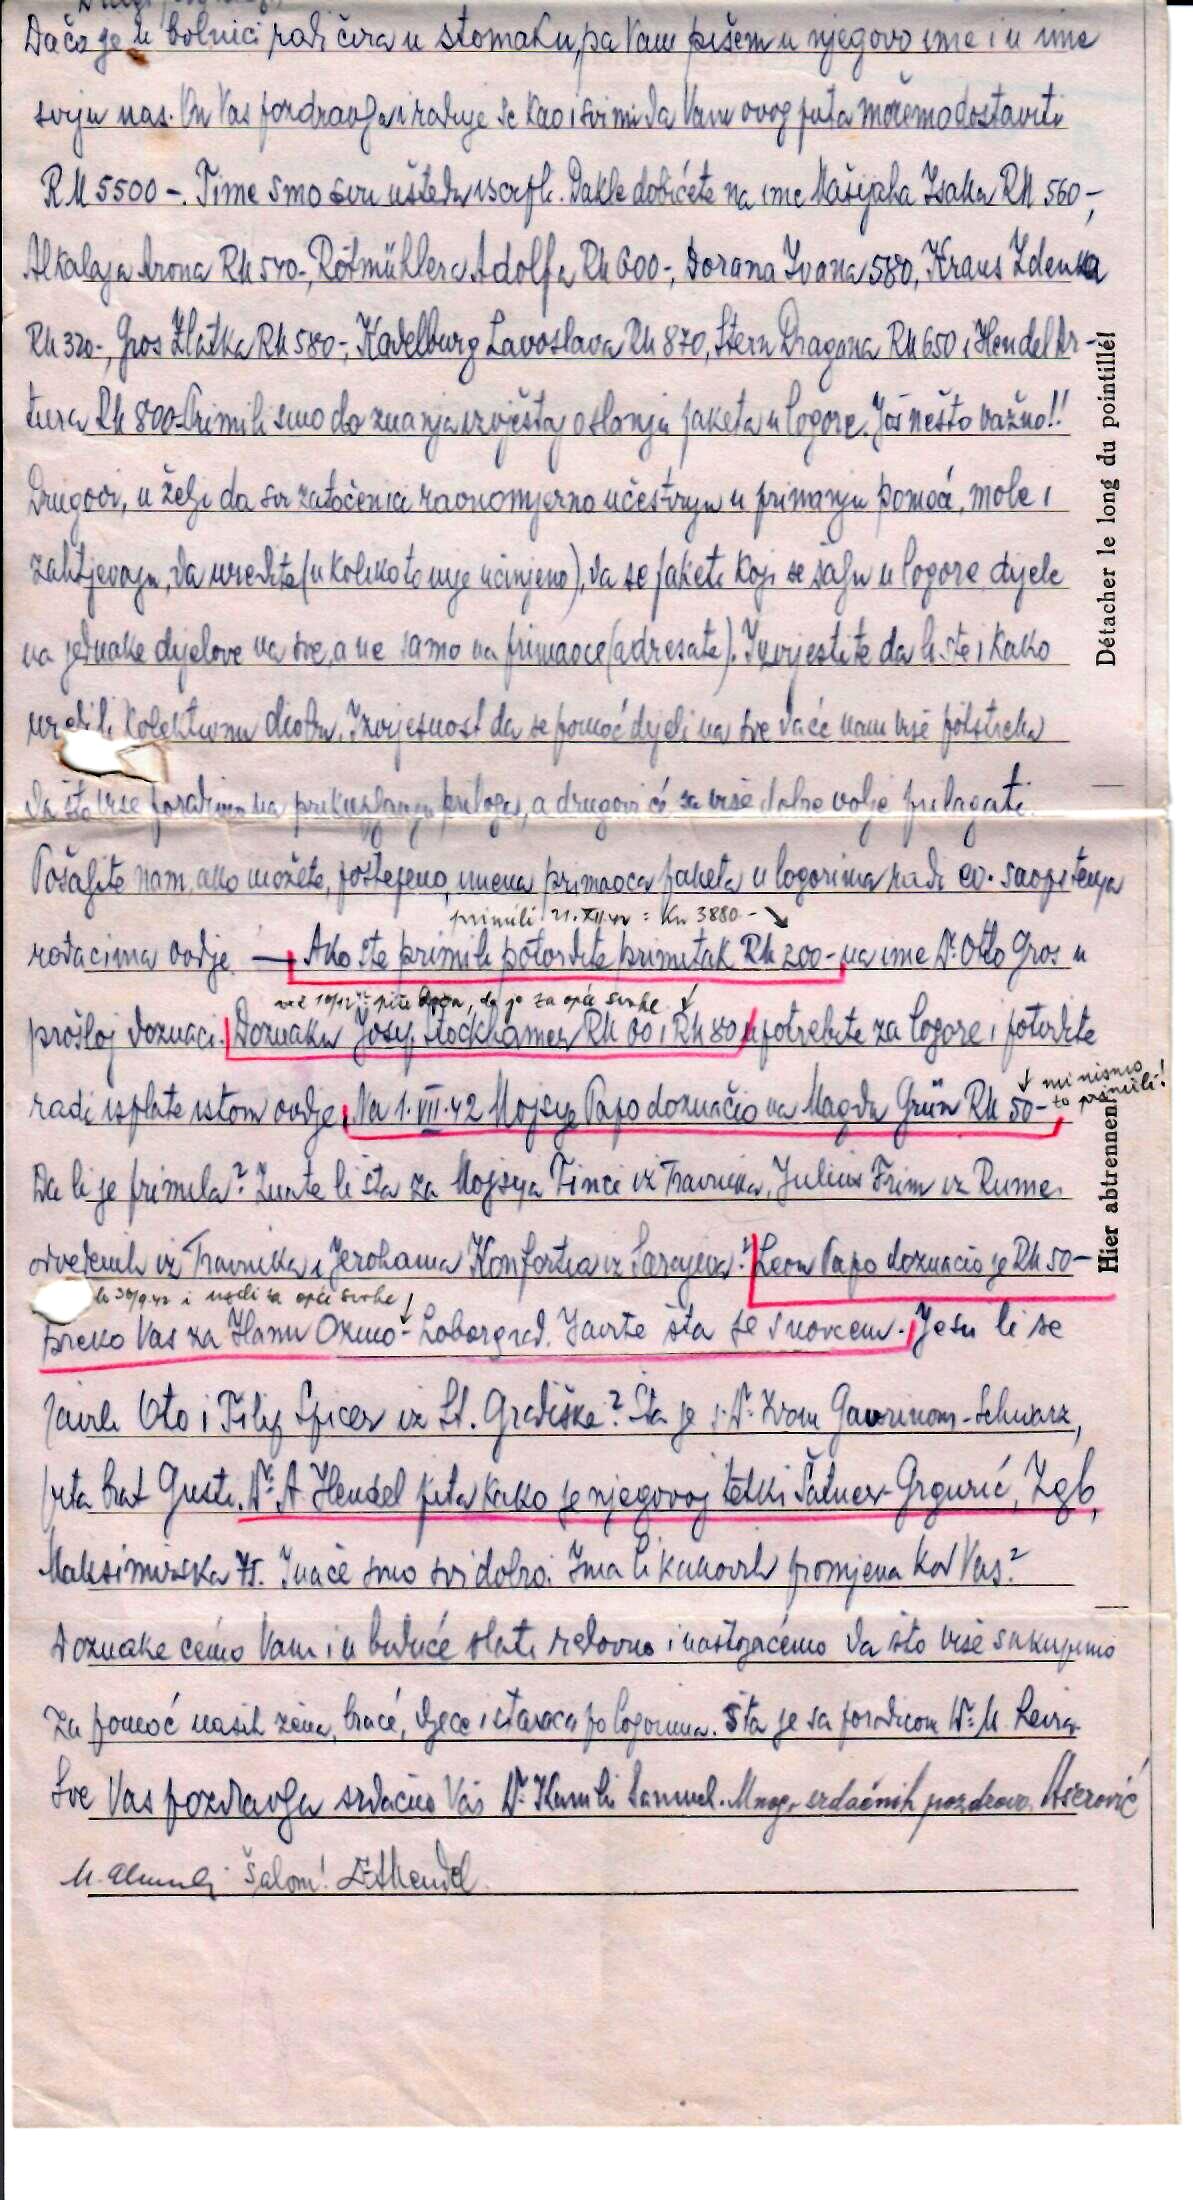 Dačo je u bolnici radi čira u stomaku, pa Vam pišem u njegovo ime i u ime
sviju nas. On Vas pozdravlja i raduje se kao i svi mi da Vam ovog puta možemo dostaviti
RM 5500-. Time smo svu uštedu iscrpli. Dakle dobićete na ime Mašijaha Isaka RM 560-,
Alkalaja Arona RM 540-, Rötmühlera Adolfa RM 600-, Dorana Ivana 580, Kraus Zdenka
RM 320-, Gros Zlatka RM 580-, Kadelburg Lavoslava RM 870, Stern Dragana RM 650 i Hendel Ar-
tura RM 800-. Primili smo do znanja izvještaj o slanju paketa u logore. Još nešto važno!!
Drugovi, u želji da svi zatočenici ravnomjerno učestvuju u primanju pomoći, mole i
zahtjevaju, da uredite (u koliko to nije učinjeno), da se paketi koji se šalju u logore, dijele
na jednake dijelove na sve, a ne samo na primaoce (adresate). Izvjestite da li ste i kako
uredili kolektivnu diobu. Izvjesnost da se pomoć dijeli na sve daće nam više potstreka
da što više poradimo na prikupljanju priloga, a drugovi će sa više dobre volje prilagati.
Pošaljite nam, ako možete, postepeno, imena primaoca paketa u logorima radi ev. saopštenja
primili 21.XII.42 = Kn 3880-
rođacima ovdje. — Ako ste primili potvrdite primitak RM 200- na ime Dr. Otto Gros u
piše, da je za opće svrhe
prošloj doznaci. Doznaku Josip Stockhamer RM 60 i RM 80 upotrebite za logore i potvrdite
mi nismo
to primili!
radi isplate istom ovdje. Na 1.VII.42 Mojsije Papo doznačio na Magdu Grün RM 50-
Da li je primila? Znate li šta za Mojsija Finci iz Travnika, Julius Frim iz Rume,
odvedenih iz Travnika i Jerohama Konfortia iz Sarajeva? Leon Papo doznačio je RM 50-
30/9.42 i uzeli za opće svrhe
preko Vas za Hanu Ozmo - Loborgrad. Javite šta je s novcem. Jesu li se
javili Oto i Filip Spicer iz St. Gradiške? Šta je s Dr. Zvom Gavrinom-Schwarz,
pita brat Gusti. Dr. A. Hendel pita kako je njegovoj tetki Šatner-Grgurić, Zgb,
Maksimirska 75. Inače smo svi dobro. Ima li kakovih promjena kod Vas?
Doznake ćemo Vam i u buduće slati redovno i nastojaćemo da što više sakupimo
za pomoć naših žena, braće, djece i staraca po logorima. Šta je sa porodicom Dr. M. Levia.
Sve Vas pozdravlja srdačno Vaš Dr. Kamhi Samuel. Mnogo srdačnih pozdrava Aserović
Šalom! Dr. A Hendel.
Détacher le long du pointillé!
Hier abtrennen!